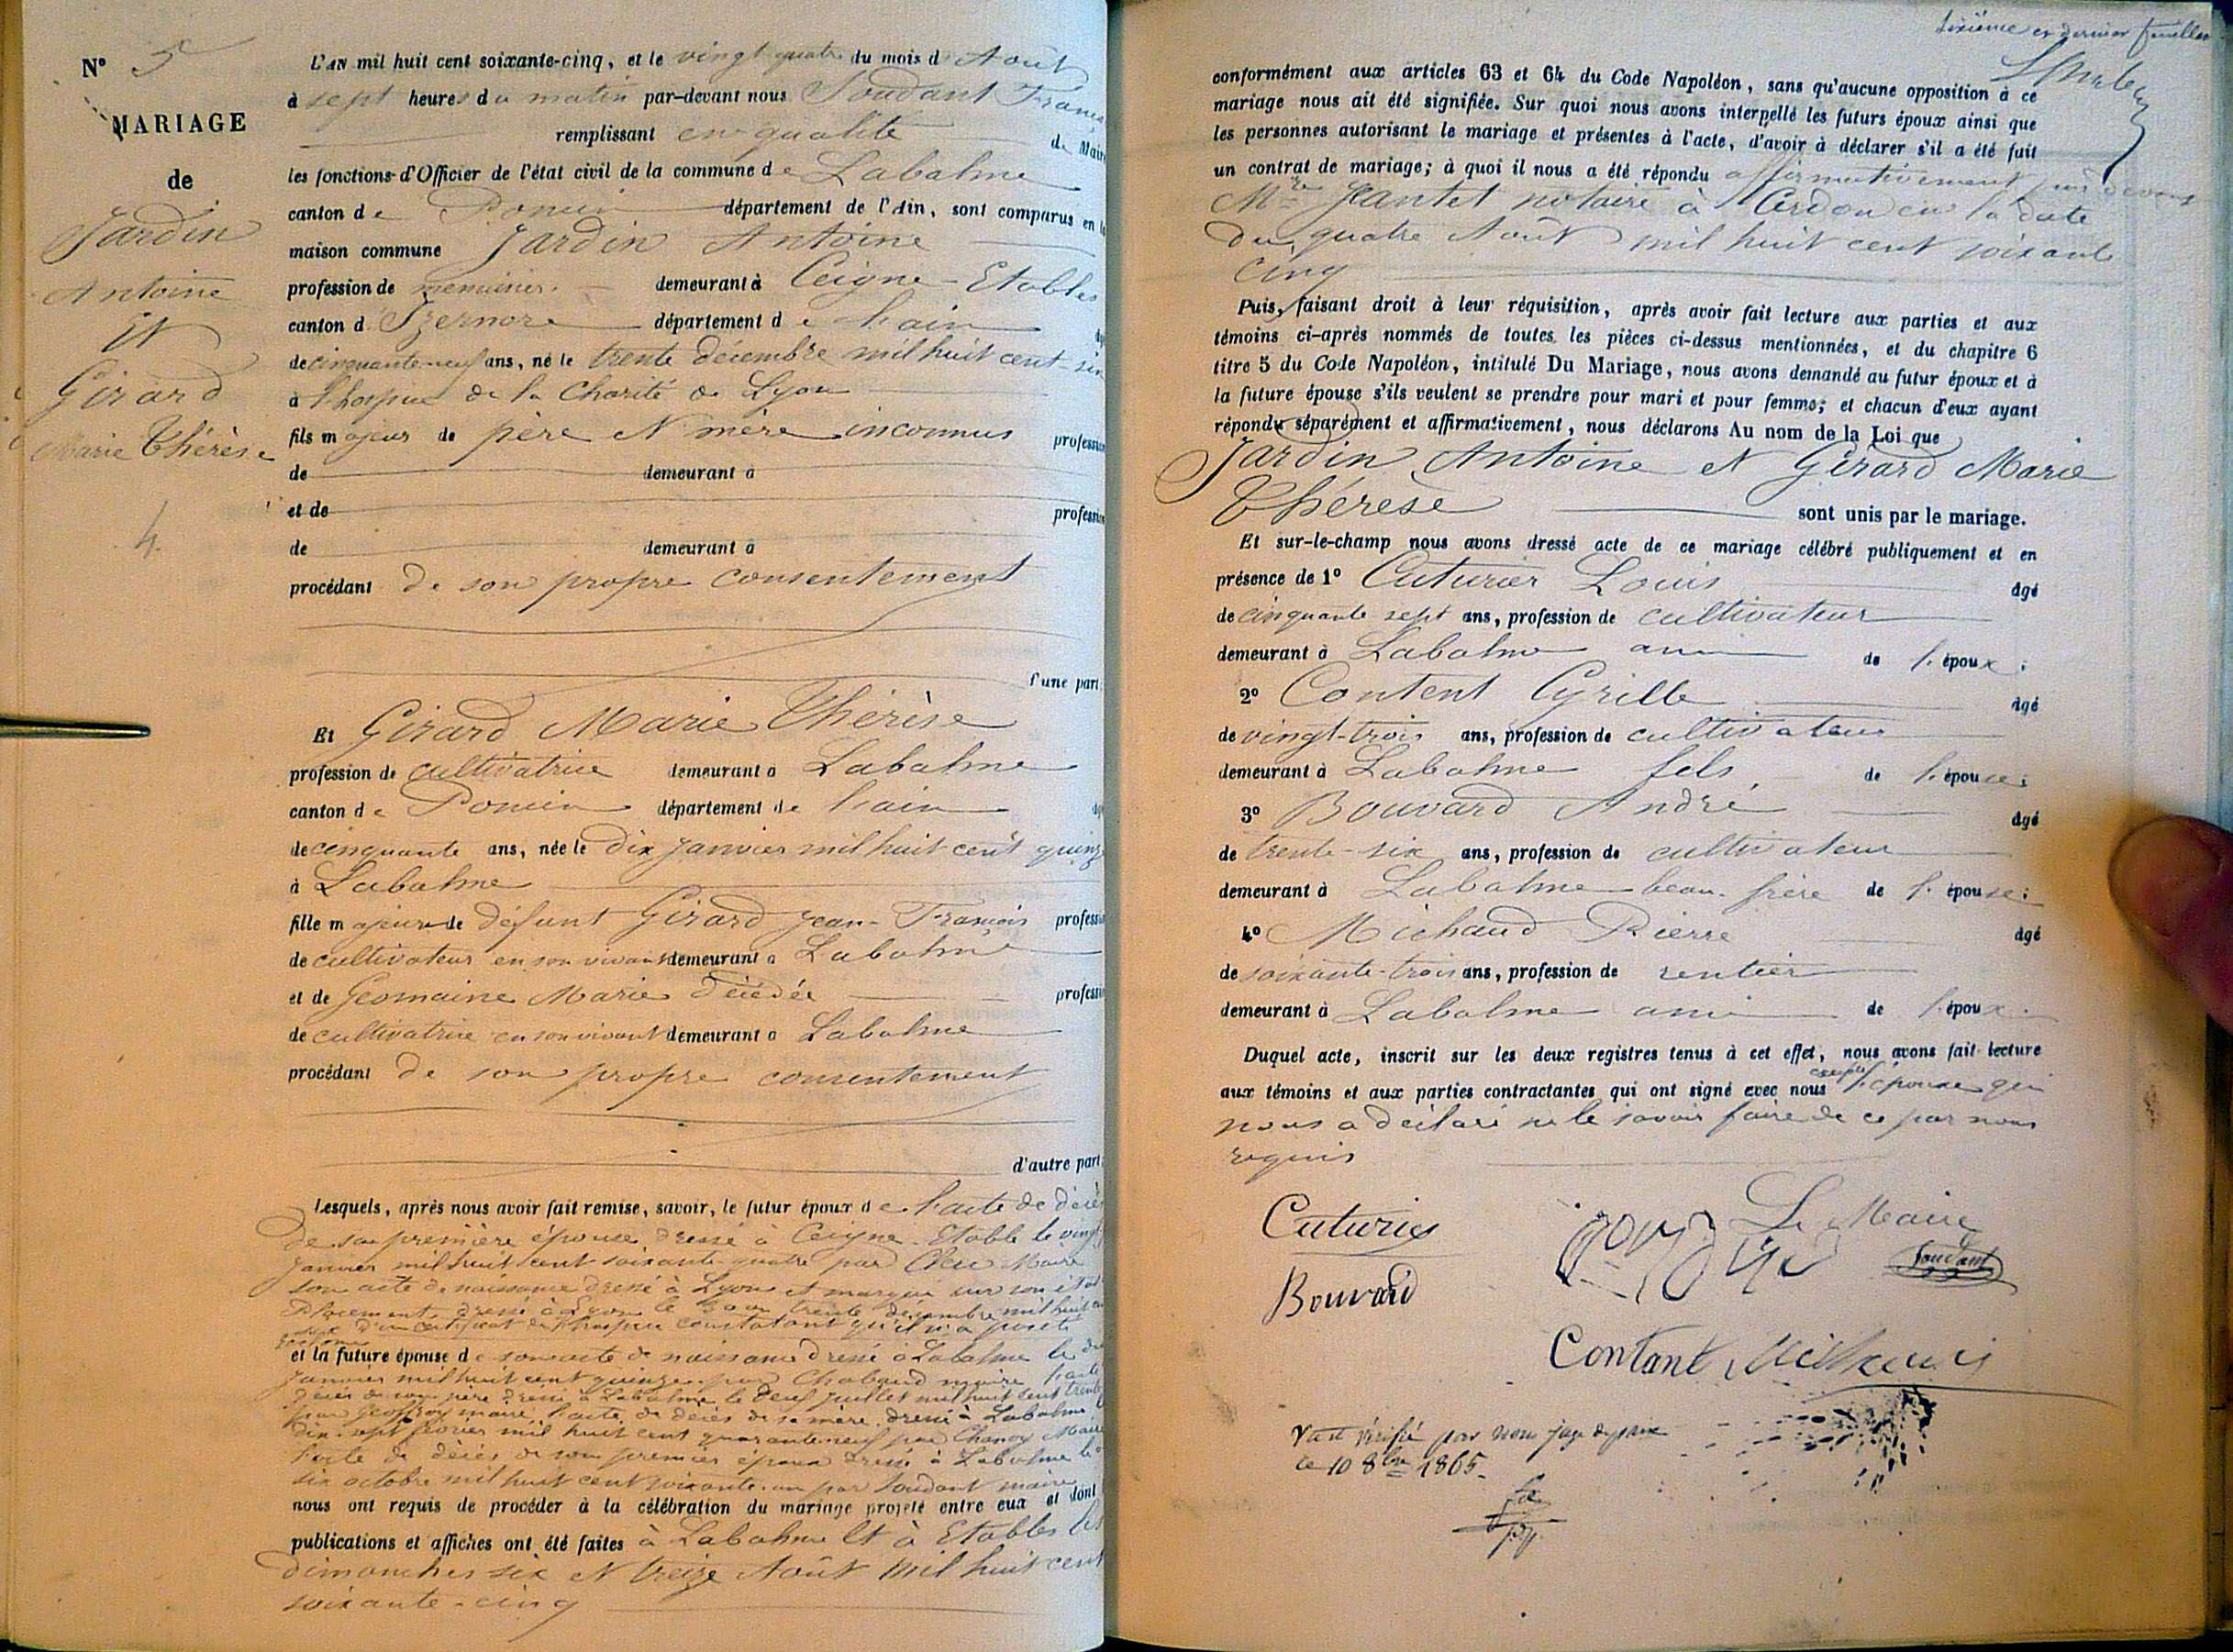 N° 5
MARIAGE
de
Jardin
Antoine
Et
Girard
Marie Thérèse
4
L'an mil huit cent soixante-cinq, et le vingt quatre du mois d'Août
à sept heures du matin par-devant nous Soudant
remplissant en qualité de Maire
les fonctions d'Officier de l'état civil de la commune de Labalme
canton de Poncin département de l'Ain, sont comparus en la
maison commune Jardin Antoine
profession de demeurant à Ceigne - Etables
canton d'Izernore département de l'ain
de cinquante neuf ans, né le trente décembre mil huit cent six
à l'hospice de la Charité de Lyon
fils majeur de père et mère inconnus profession
de demeurant à
et de profession
de demeurant à
procédant de son propre consentement
d'une part
Et Girard Marie Thérèse
profession de cultivatrice demeurant à Labalme
canton de Poncin département de l'ain
de cinquante ans, née le dix janvier mil huit cent quinze
à Labalme
fille majeure de défunt Girard Jean-François profession
de cultivateur en son vivant demeurant à Labalme
et de Geomaine Marie décédée profession
de cultivatrice en son vivant demeurant à Labalme
procédant de son propre consentement
d'autre part
Lesquels, après nous avoir fait remise, savoir, le futur époux de l'acte de décès
de sa première épouse dressé à Ceigne-Etable le vingt
janvier mil huit cent soixante quatre par Maire
son acte de naissance dressé à Lyon et
dressé à Lyon le trente décembre mil huit cent
certificat de l'hospice constatant qu'il n'a
et la future épouse de son acte de naissance dressé à Labalme le dix
janvier mil huit cent quinze par Chabaud maire l'acte
décès de son père dressé à Labalme le neuf juillet mil huit cent trente
par Geoffroy maire, l'acte de décès de sa mère dressé à Labalme le
dix-sept février mil huit cent quarante neuf par Chanoy Maire
l'acte de décès de son premier époux dressé à Labalme le
six octobre mil huit cent soixante un par Soudant maire
nous ont requis de procéder à la célébration du mariage projeté entre eux et dont
publications et affiches ont été faites à Labalme et à Etables les
dimanches six et treize Août mil huit cent
soixante-cinq
sixième et dernier feuillet
conformément aux articles 63 et 64 du Code Napoléon, sans qu'aucune opposition à ce
mariage nous ait été signifiée. Sur quoi nous avons interpellé les futurs époux ainsi que
les personnes autorisant le mariage et présentes à l'acte, d'avoir à déclarer s'il a été fait
un contrat de mariage; à quoi il nous a été répondu affirmativement par devant
Me Jeantet notaire à Cerdon en la date
du quatre Août mil huit cent soixante
cinq
Puis, faisant droit à leur réquisition, après avoir fait lecture aux parties et aux
témoins ci-après nommés de toutes les pièces ci-dessus mentionnées, et du chapitre 6
titre 5 du Code Napoléon, intitulé Du Mariage, nous avons demandé au futur époux et à
la future épouse s'ils veulent se prendre pour mari et pour femme; et chacun d'eux ayant
répondu séparément et affirmativement, nous déclarons Au nom de la Loi que
Jardin Antoine et Girard Marie
Thérèse sont unis par le mariage.
Et sur-le-champ nous avons dressé acte de ce mariage célébré publiquement et en
présence de 1° Cuturier Louis âgé
de cinquante sept ans, profession de cultivateur
demeurant à Labalme ami de l'époux;
2° Content Cyrille âgé
de vingt-trois ans, profession de cultivateur
demeurant à Labalme fils de l'épouse;
3° Bouvard André âgé
de trente-six ans, profession de cultivateur
demeurant à Labalme beau-frère de l'épouse;
4° Michaud Pierre âgé
de soixante-trois ans, profession de rentier
demeurant à Labalme ami de l'époux.
Duquel acte, inscrit sur les deux registres tenus à cet effet, nous avons fait lecture
aux témoins et aux parties contractantes qui ont signé avec nous excepté l'épouse qui
nous a déclaré ne le savoir faire de ce par nous
requis
Cuturier
Le Maire
Jardin
Soudant
Bouvard
Contant
Vu et vérifié par nous juge de paix
ce 10 8bre 1865.